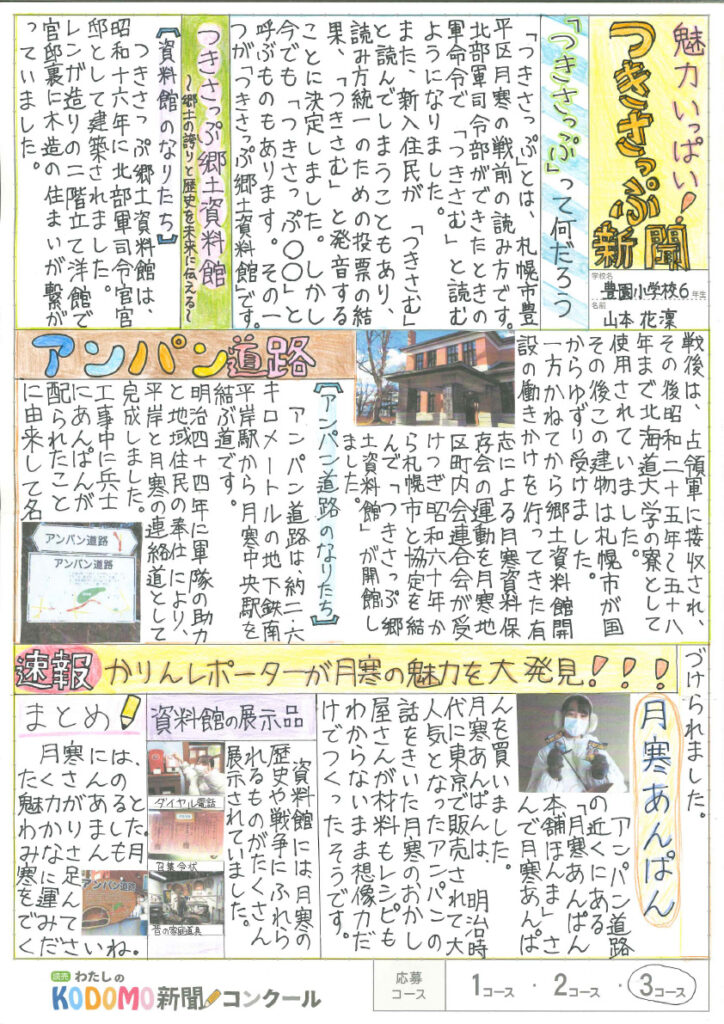 魅力いっぱい!
つきさっぷ
新聞
学校名
豊園小学校6年生
名前
山本 花凜
「つきさっぷ」って何だろう
「つきさっぷ」とは、札幌市豊
平区月寒の戦前の読み方です。
北部軍司令部ができたときの
軍命令で「つきさむ」と読む
ようになりました。
また、新入住民が、「つきさむ」
と読んでしまうこともあり、
読み方統一のための投票の結
果、「つきさむ」と発音する
ことに決定しました。しかし
今でも「つきさっぷ〇〇」と
呼ぶものもあります。その一
つが「つきさっぷ郷土資料館」です。
つきさっぷ郷土資料館
~郷土の誇りと歴史を未来に伝える~
【資料館のなりたち】
つきさっぷ郷土資料館は、
昭和十六年に北部軍司令官官
邸として建築されました。
レンガ造りの二階立て洋館で
官邸裏に木造の住まいが繋が
っていました。
戦後は、占領軍に接収され、
その後昭和二十五年~五十八
年まで北海道大学の寮として
使用されていました。
その後この建物は札幌市が国
からゆずり受けました。
一方かねてから郷土資料館開
設の働きかけを行ってきた有
志による月寒資料保
存会の運動を月寒地
区町内会連合会が受
けつぎ昭和六十年か
ら札幌市と協定を結
んで「つきさっぷ郷
土資料館」が開館し
ました。
アンパン道路
【アンパン道路のなりたち】
アンパン道路は、約二・六
キロメートルの地下鉄南
平岸駅から月寒中央駅を
結ぶ道です。
明治四十四年に軍隊の助力
と地域住民の奉仕により、
平岸と月寒の連絡道として
完成しました。
工事中に兵士
にあんぱんが
配られたこと
に由来して名
アンパン道路
アンパン道路
づけられました。
速報
かりんレポーターが月寒の魅力を大発見!!!
月寒あんぱん
アンパン道路
の近くにある
「月寒あんぱん
本舗ほんま」さ
んで月寒あんぱ
んを買いました。
月寒あんぱんは、明治時
代に東京で販売されて大
人気となったアンパンの
話をきいた月寒のおかし
屋さんが材料もレシピも
わからないまま想像力だ
けでつくったそうです。
資料館の展示品
資料館には、月寒の
歴史や戦争にふれら
れるものがたくさん
展示されていました。
ダイヤル電話
召集令状
昔の家庭道具
まとめ
アンパン道路
わたしの
KODOMO新聞コンクール
応募
コース
1コース・2コース・3コース